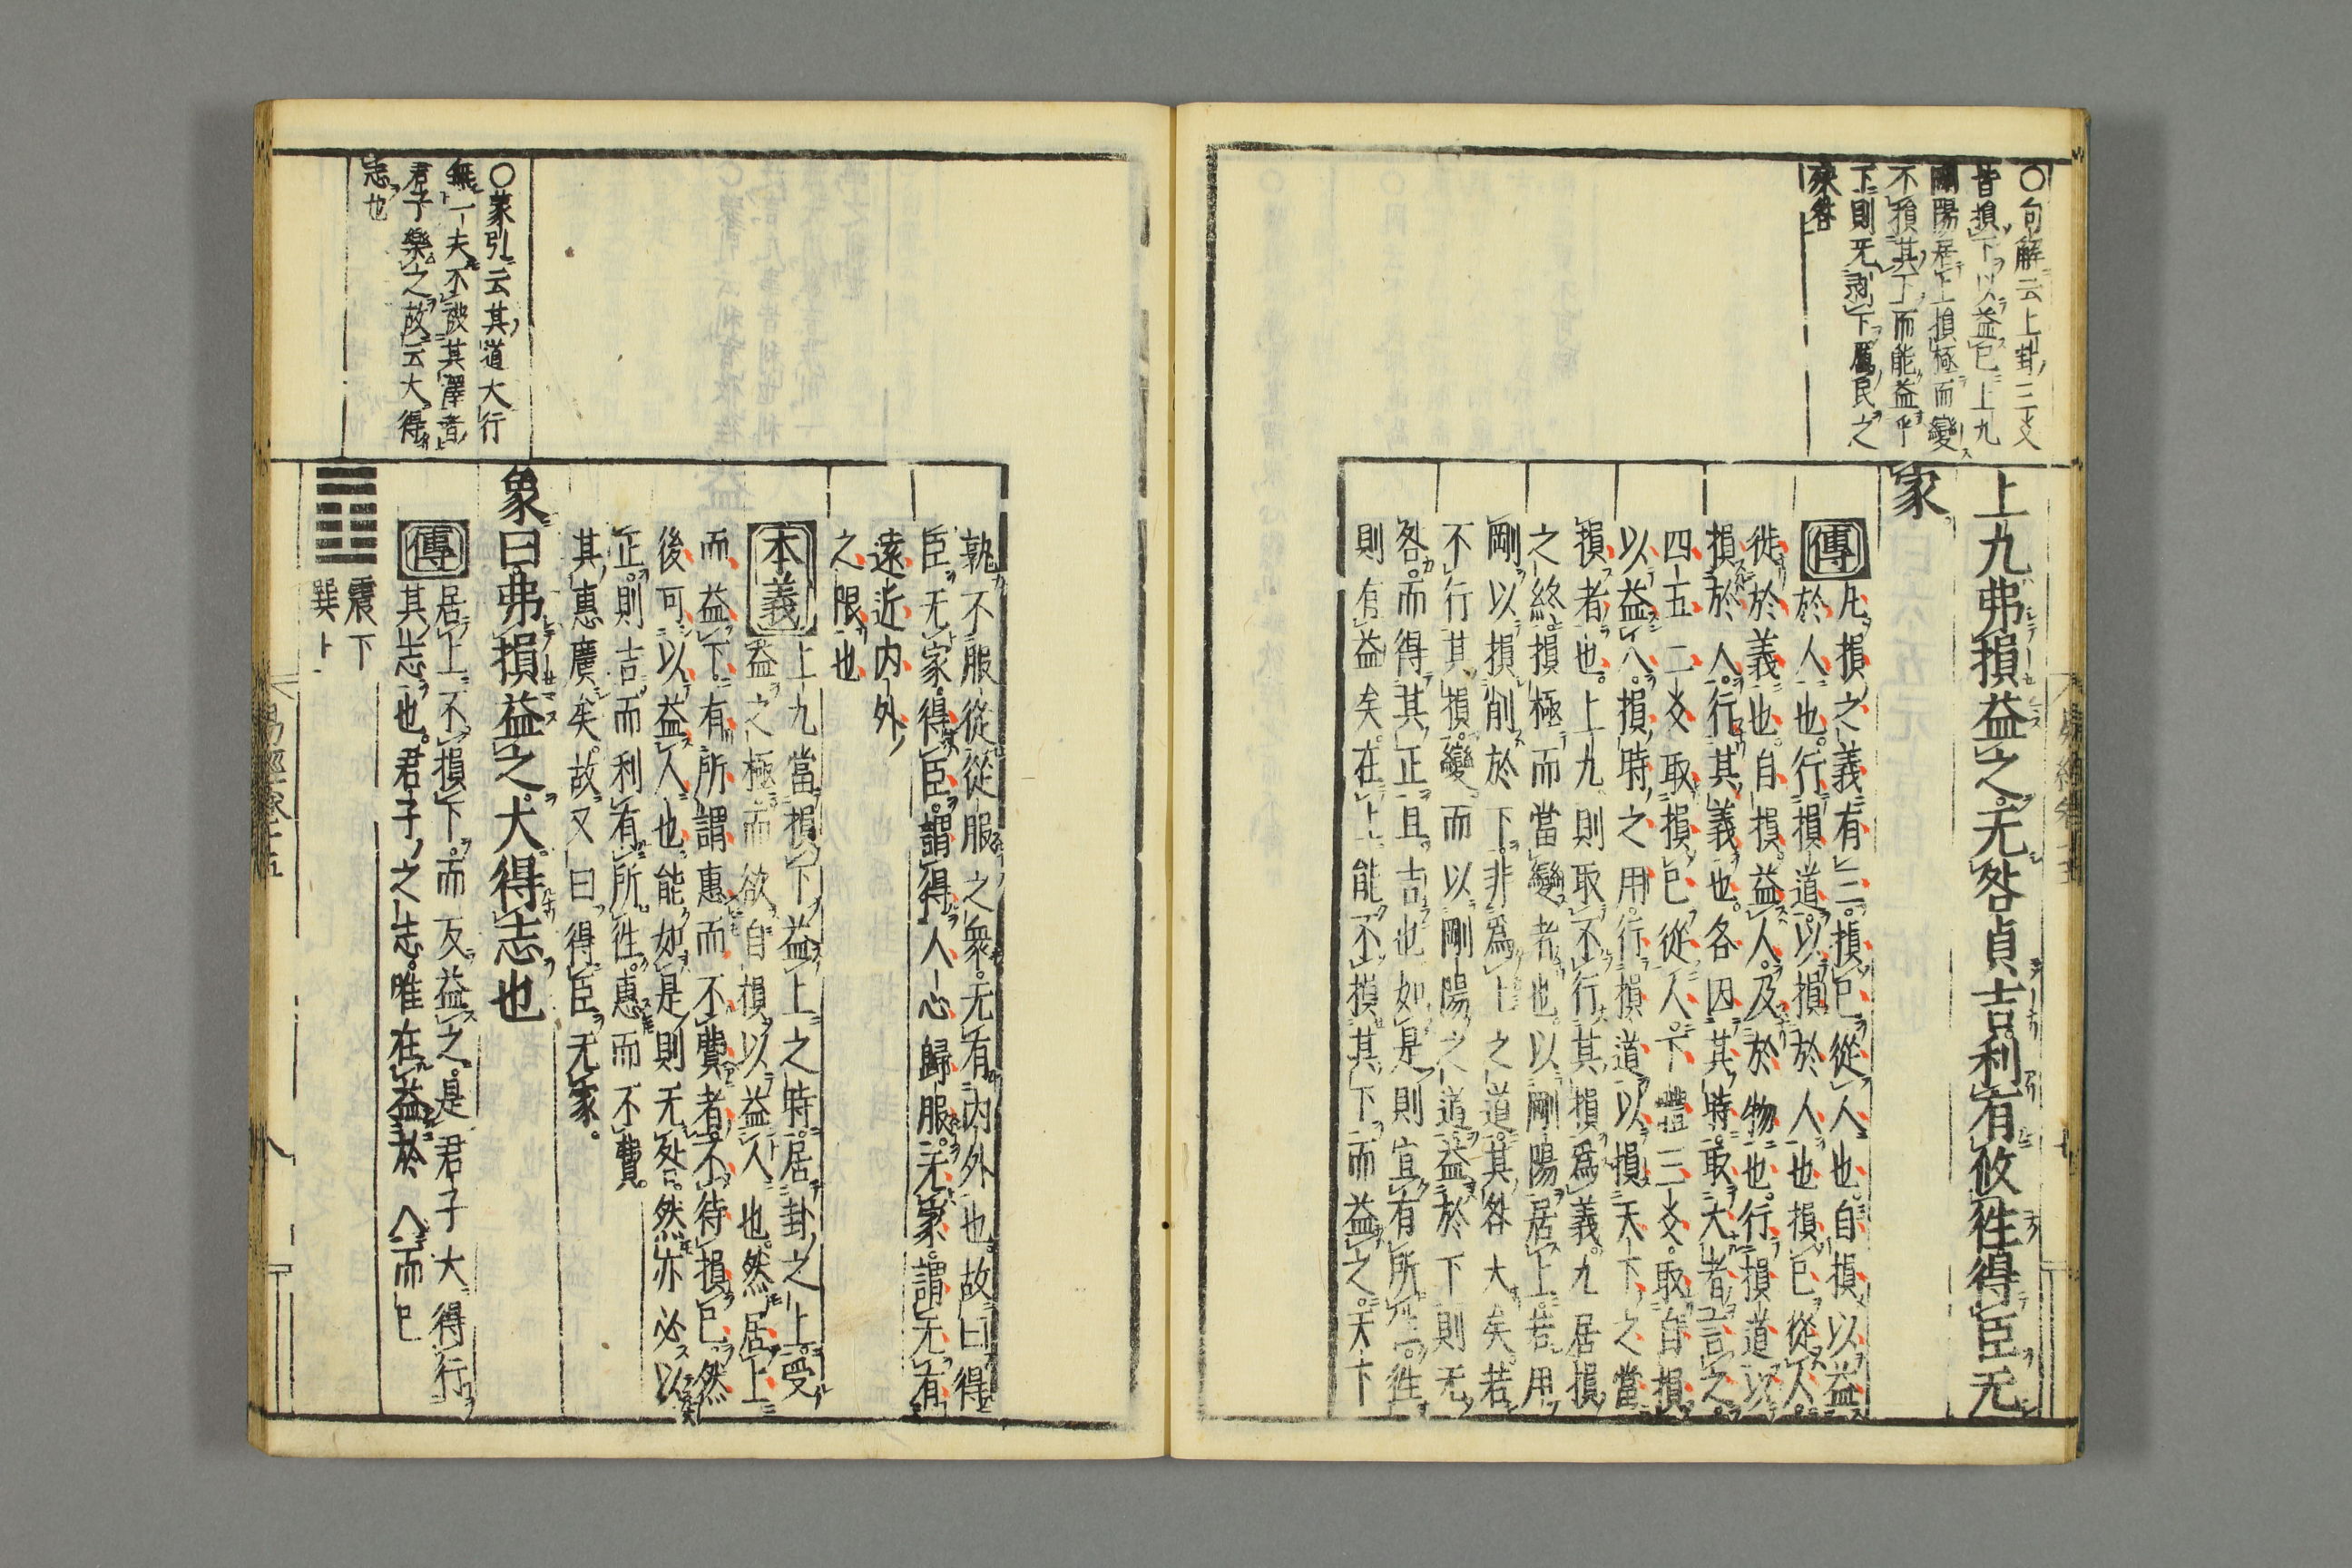 〇句解云上卦三爻
皆損下以益已上九
剛陽居上損極而變
不損其下而能益乎
下則无剥下厲民之
殃咎
上九弗損益之无咎貞吉利有攸徃得臣无
家
傳
凡損之義有三損已從人也自損以益
於人也行損道以損於人也損已從人
徙於義也自損益人及於物也行損道以
損於人行其義也各因其時取大者言之
四五二爻取損已從人下體三爻取自損
以益人損時之用行損道以損天下之當
損者也上九則取不行其損爲義九居損
之終損極而當變者也以剛陽居上若用
剛以損削於下非爲上之道其咎大矣若
不行其損變而以剛陽之道益於下則无
咎而得其正且吉也如是則宜有所徃徃
則有益矣在上能不損其下而益之天下
孰不服從從服之衆无有内外也故曰得
臣无家得臣謂得人心歸服无家謂无有
遠近内外
之限也
本義
上九當損下益上之時居卦之上受
益之極而欲自損以益人也然居上
而益下有所謂惠而不費者不待損已然
後可以益人也能如是則无咎然亦必以
正則吉而利有所徃惠而不費
其惠廣矣故又曰得臣无家
〇蒙引云其道大行
無一夫不被其澤者
君子樂之故云大得
志也
象曰弗損益之大得志也
傳
居上不損下而反益之是君子大得行
其志也君子之志唯在益於人而已
震下
巽上
易經卷十五